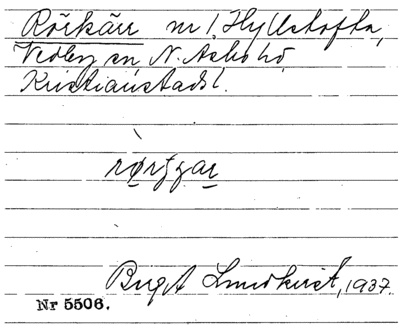 Rörkärr nr 1. Hyllstofta,
Vedby sn N. Åsbo hd,
Kristianstads l.
Birgit Lundkvist, 1937.
Nr 5506.